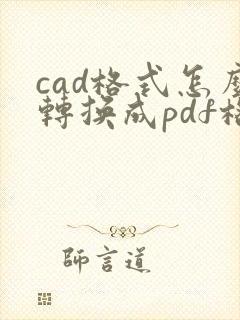 cad格式怎麼
轉換成pdf格
師言道